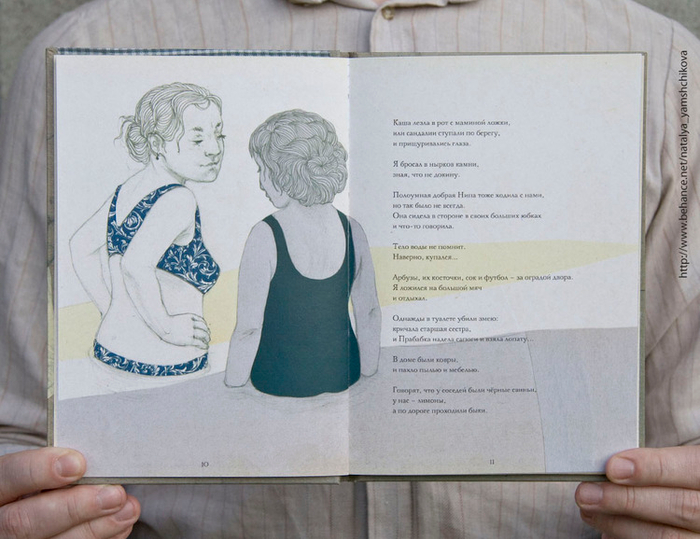 Каша лезла в рот с маминой ложки,
или сандалии ступали по берегу,
и прищуривались глаза.
Я бросал в нырков камни,
зная, что не докину.
Полоумная добрая Нина тоже ходила с нами,
но так было не всегда.
Она сидела в стороне в своих больших юбках
и что-то говорила.
Тело воды не помнит.
Наверно, купался...
Арбузы, их косточки, сок и футбол – за оградой двора.
Я ложился на большой мяч
и отдыхал.
Однажды в туалете убили змею:
кричала старшая сестра,
и Прабабка надела сапоги и взяла лопату...
В доме были ковры,
и пахло пылью и мебелью.
Говорят, что у соседей были чёрные свиньи,
у нас – лимоны,
а по дороге проходили быки.
10
11
http://www.behance.net/natalya_yamshchikova